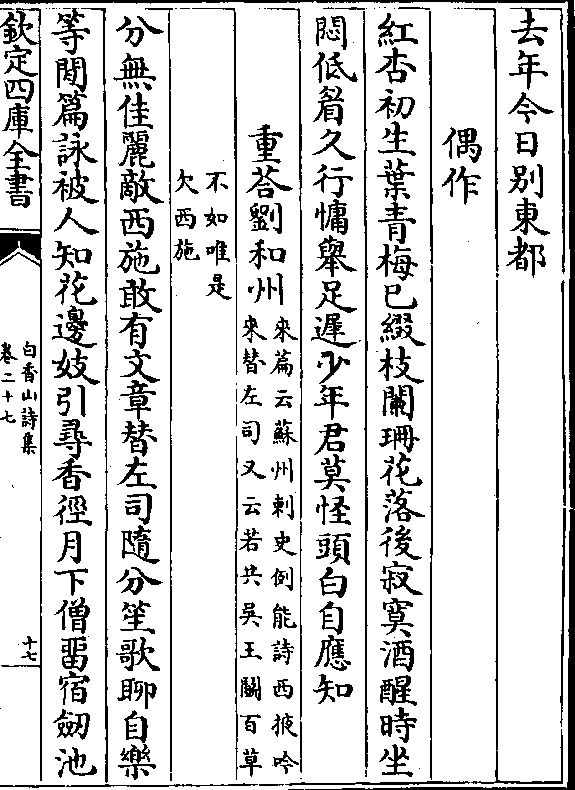 去年今日别東都
偶作
紅杏初生葉青梅已綴枝闌珊花落後寂寞酒醒時坐
悶低眉久行慵舉足遲少年君莫怪頭白自應知
重荅劉和州來篇云蘇州刺史例能詩西掖吟
來替左司又云若共吳王鬭百草
不如唯是
欠西施
分無佳麗敵西施敢有文章替左司隨分笙歌聊自樂
等閒篇詠被人知花邊妓引尋香徑月下僧留宿劒池
欽定四庫全書
白香山詩集
卷二十七
十七